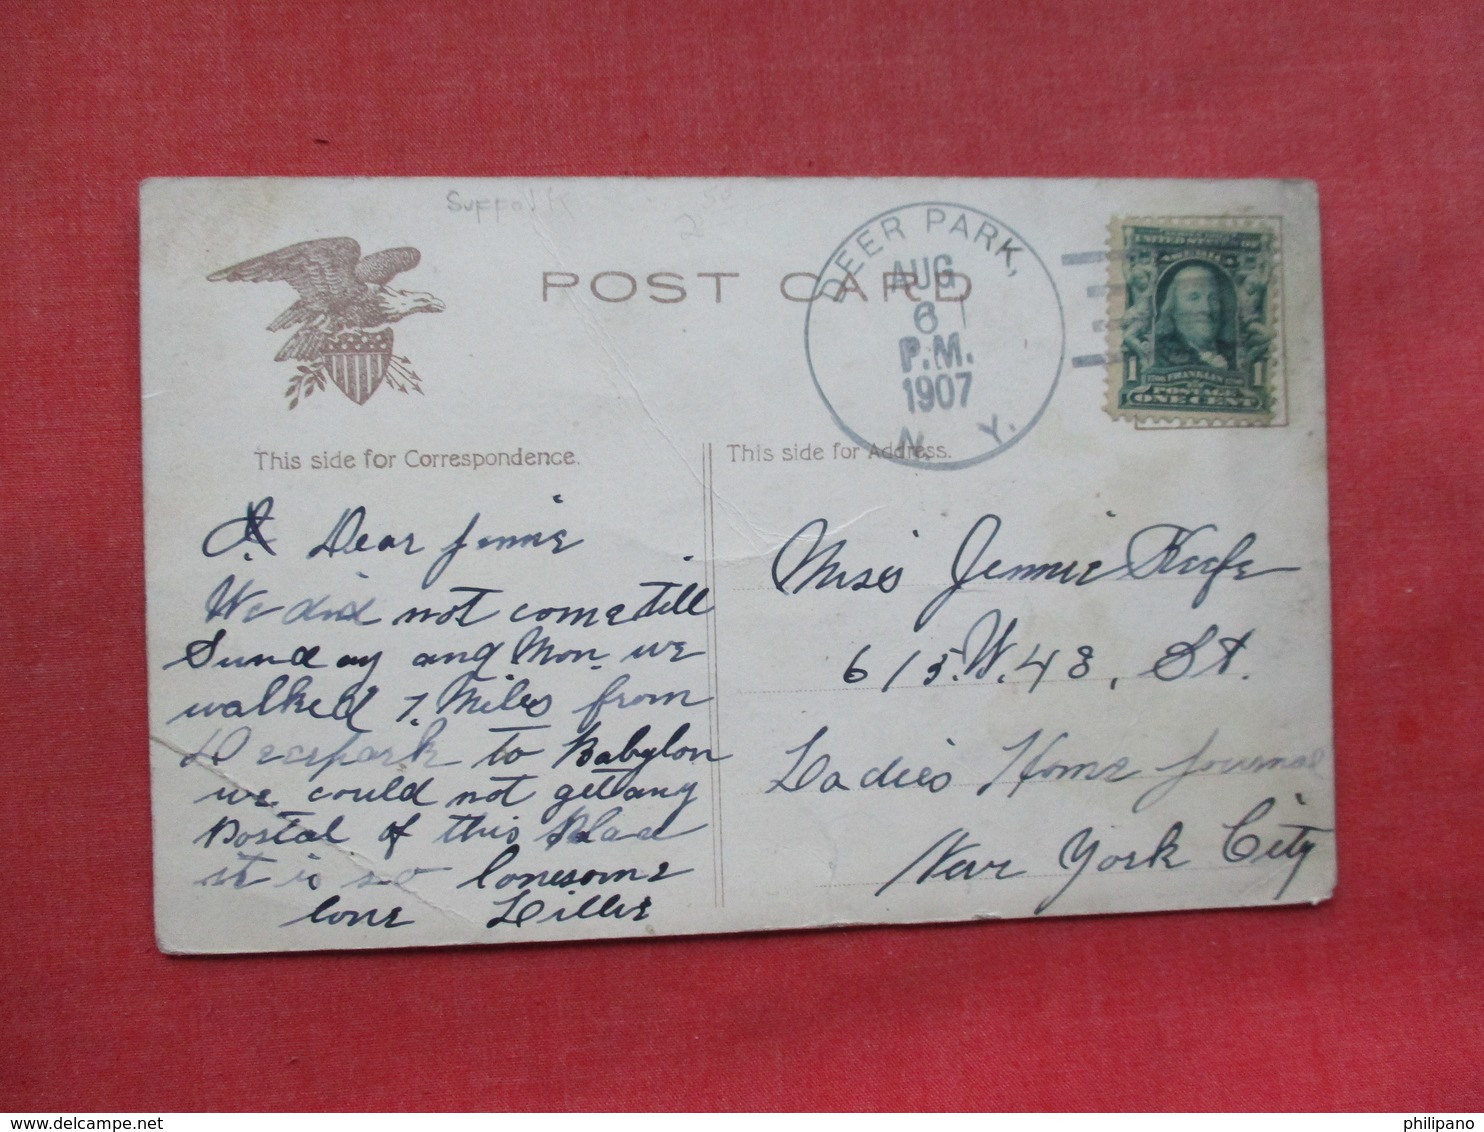 Suffolk
POST CARD
DEER PARK,
AUG
6
P.M.
1907
N. Y.
UNITED STATES OF
AMERICA
1 FRANKLIN 1
POSTAGE
ONE CENT
This side for Correspondence.
This side for Address.
Dear Jennie
We did not come till
Sunday and Mon. we
walked 7. Miles from
Deerpark to Babylon
we could not get any
Postal of this Place
it is so lonesome
love Lillie
Miss Jennie Keefe
615.W.48, St.
Ladies Home Journal
New York City
delcampe.net
philipano